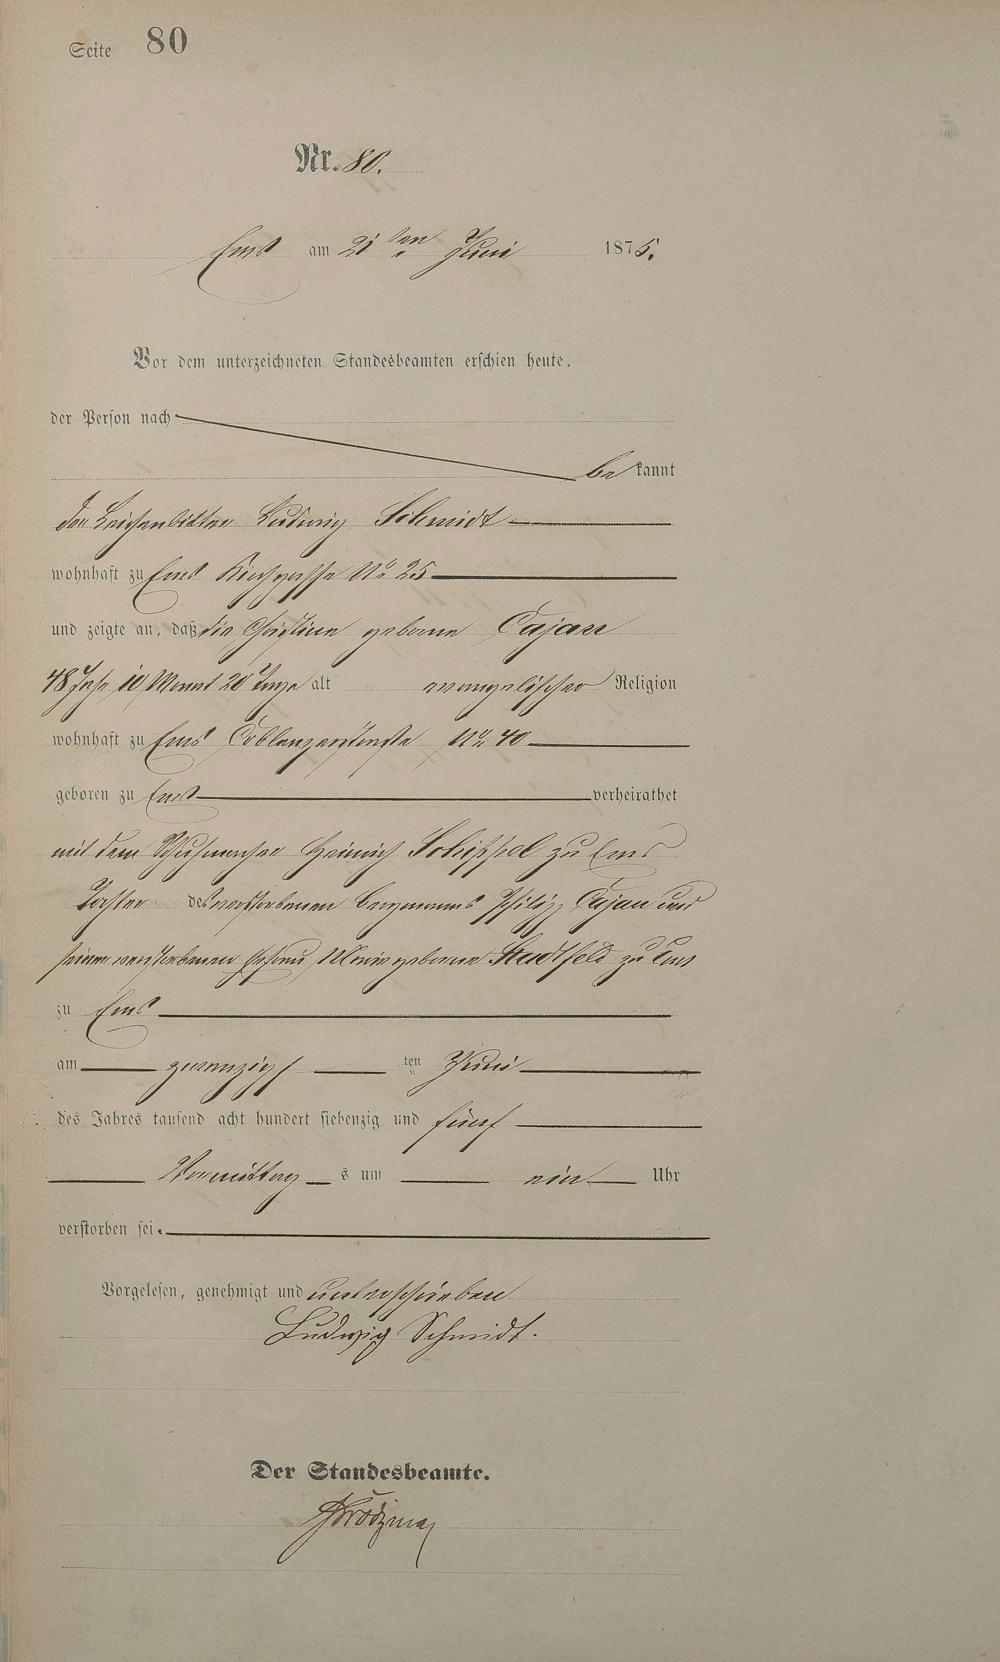 Seite 80
Nr. 80.
Ems am 21ten Juni 1875.
Vor dem unterzeichneten Standesbeamten erschien heute,
der Person nach
bekannt
der Leichenbitter Ludwig Schmidt
wohnhaft zu Ems Kirchgasse No 25
und zeigte an, daß die Christine geborne Cajan
48 Jahr 10 Monat 20 Tage alt evangelischer Religion
wohnhaft zu Ems Coblenzerstraße No 40
geboren zu Ems verheirathet
mit dem Schuhmacher Heinrich Schippel zu Ems
Tochter des verstorbenen Bergmanns Philipp Cajan und
seiner verstorbenen Ehefrau geborne Stadtfeld zu Ems
zu Ems
am zwanzigsten Juni
des Jahres tausend acht hundert siebenzig und fünf
Vormittags um ein Uhr
verstorben sei.
Vorgelesen, genehmigt und unterschrieben
Ludwig Schmidt.
Der Standesbeamte.